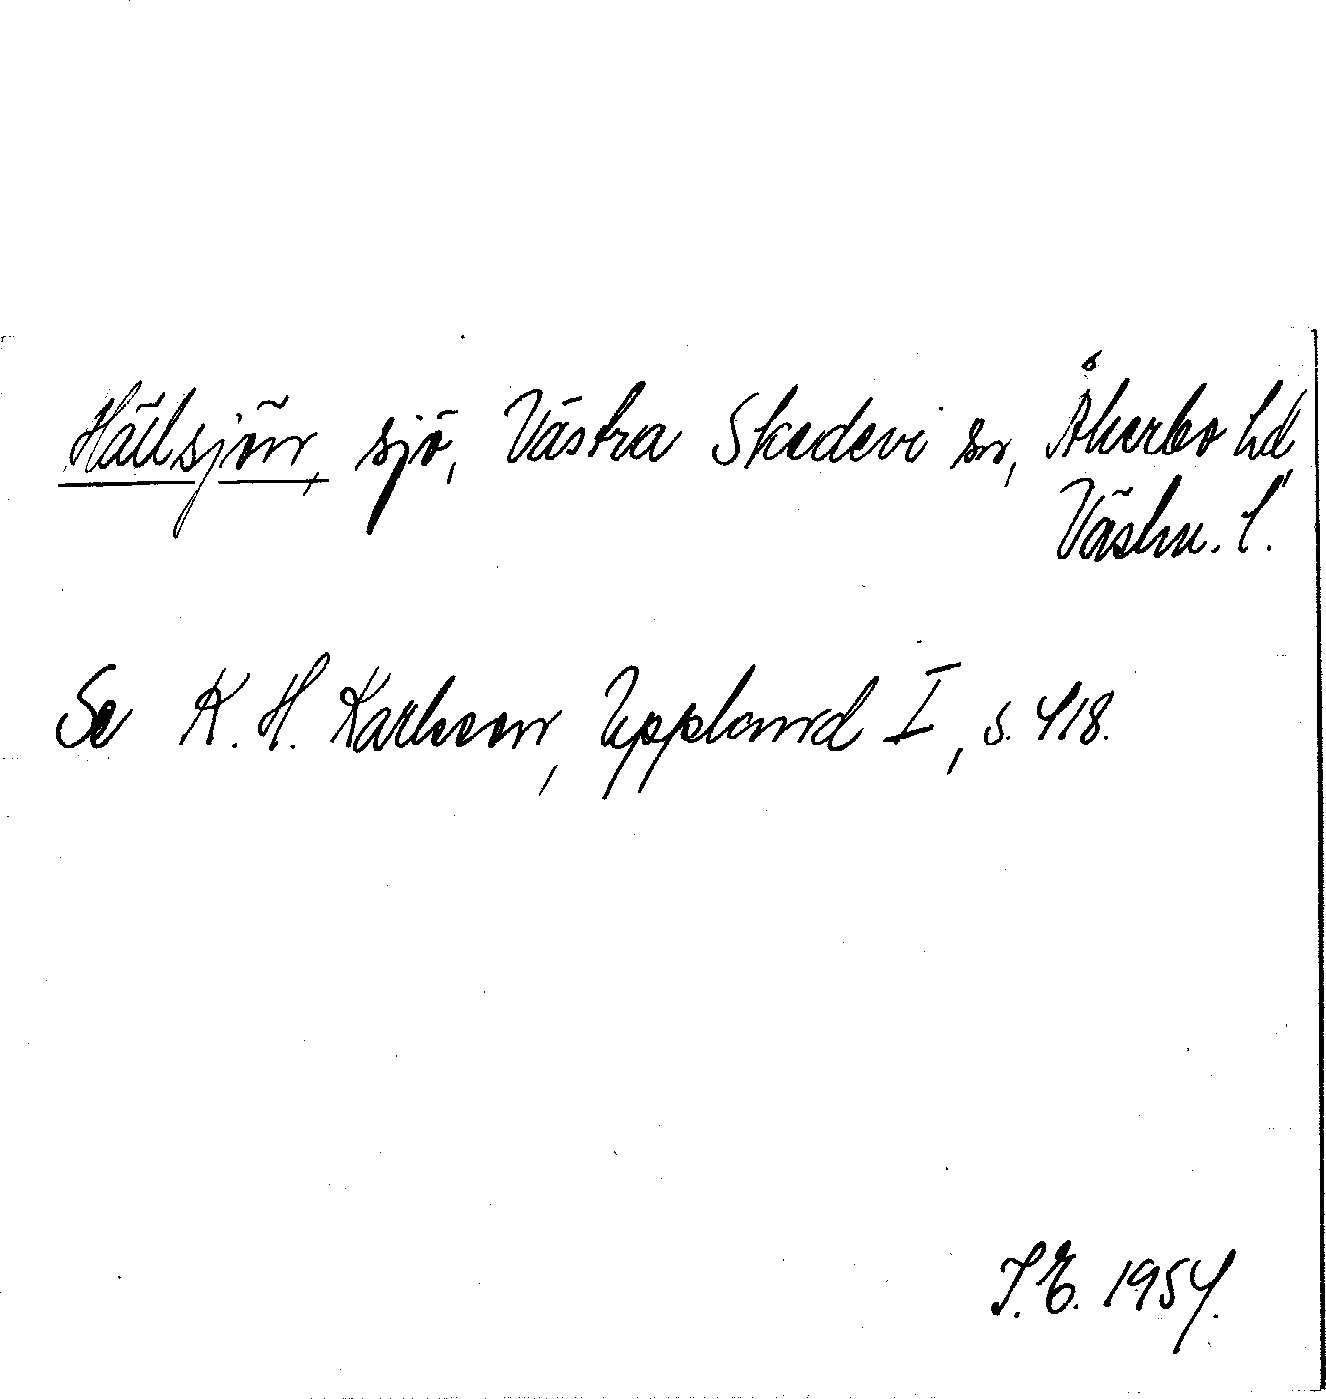 Hällsjön, sjö, Västra Skedevi sn, Åkerbo hd,
Västm. l.
Se K. H. Karlsson, Uppland I, s. 418.
J. E. 1954.